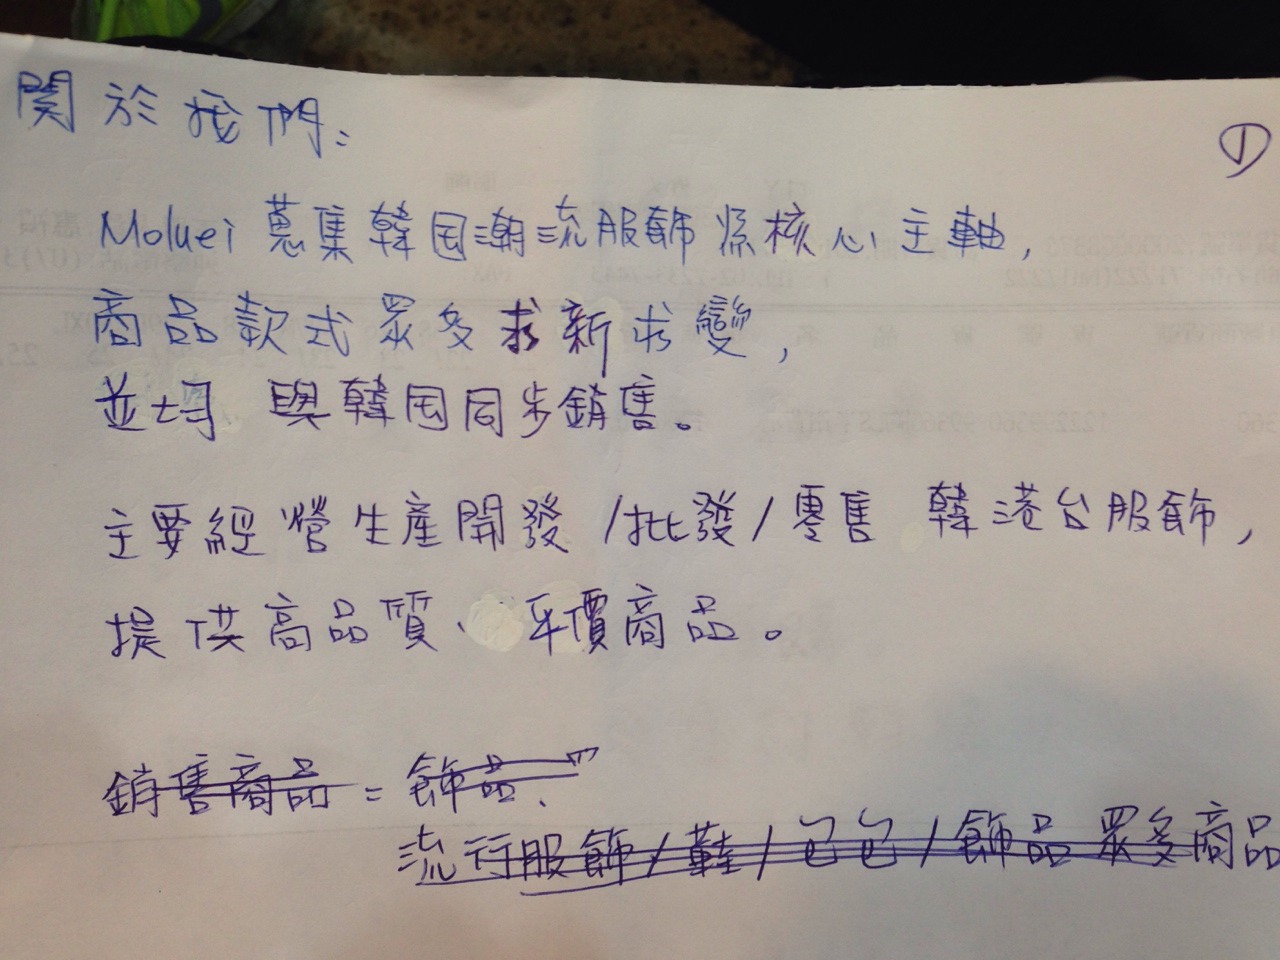 関於我們:
①
Moluei 蒐集韓国潮流服飾為核心主軸,
商品款式眾多求新求變,
並均 與韓国同步銷售。
主要經營生產開發/批發/零售 韓港台服飾,
提供高品質、平價商品。
銷售商品=飾品、
流行服飾/鞋/包包/飾品眾多商品